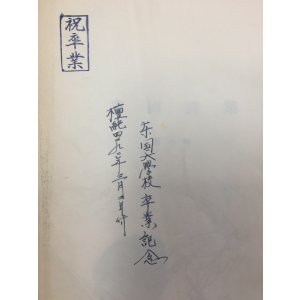 祝卒業
东国大學校 卒業記念
檀紀四二九二年三月